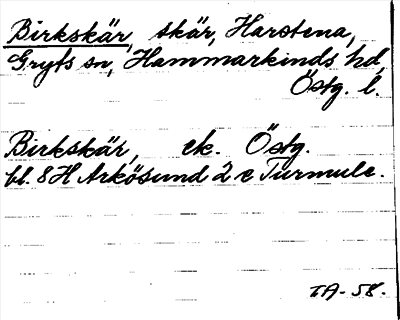 Birkskär, skär, Harstena,
Gryts sn, Hammarkinds hd,
Östg. l.
Birkskär, ek. Östg.
bl. 8H Arkösund 2 c Turmulc.
TA-58.